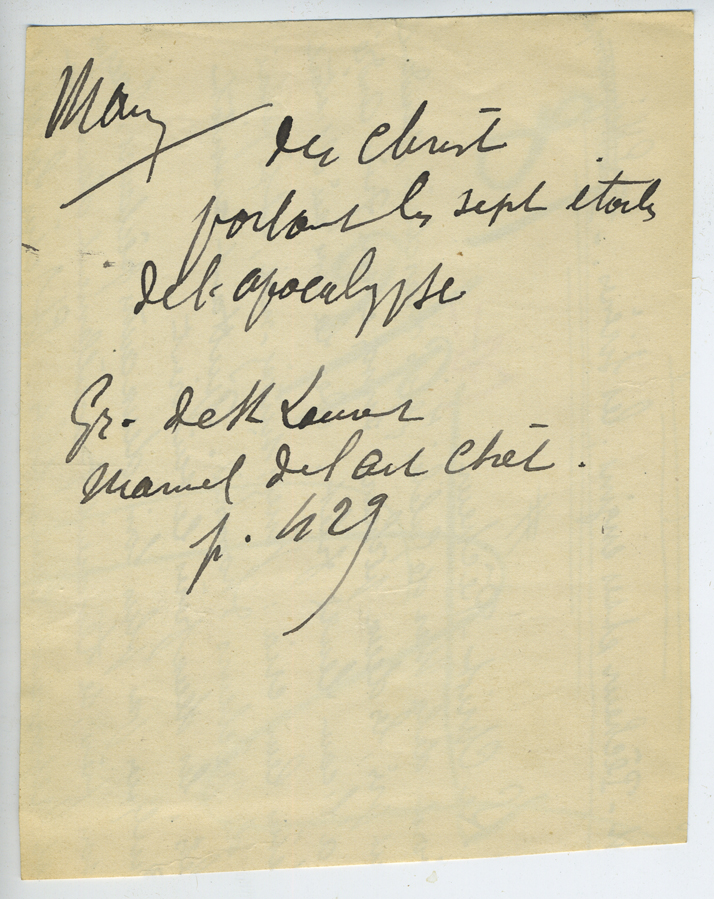 Main
du Christ
portant les sept étoiles
de l'apocalypse
Gr. de St Laurent
Manuel de l'art chrét.
p. 429